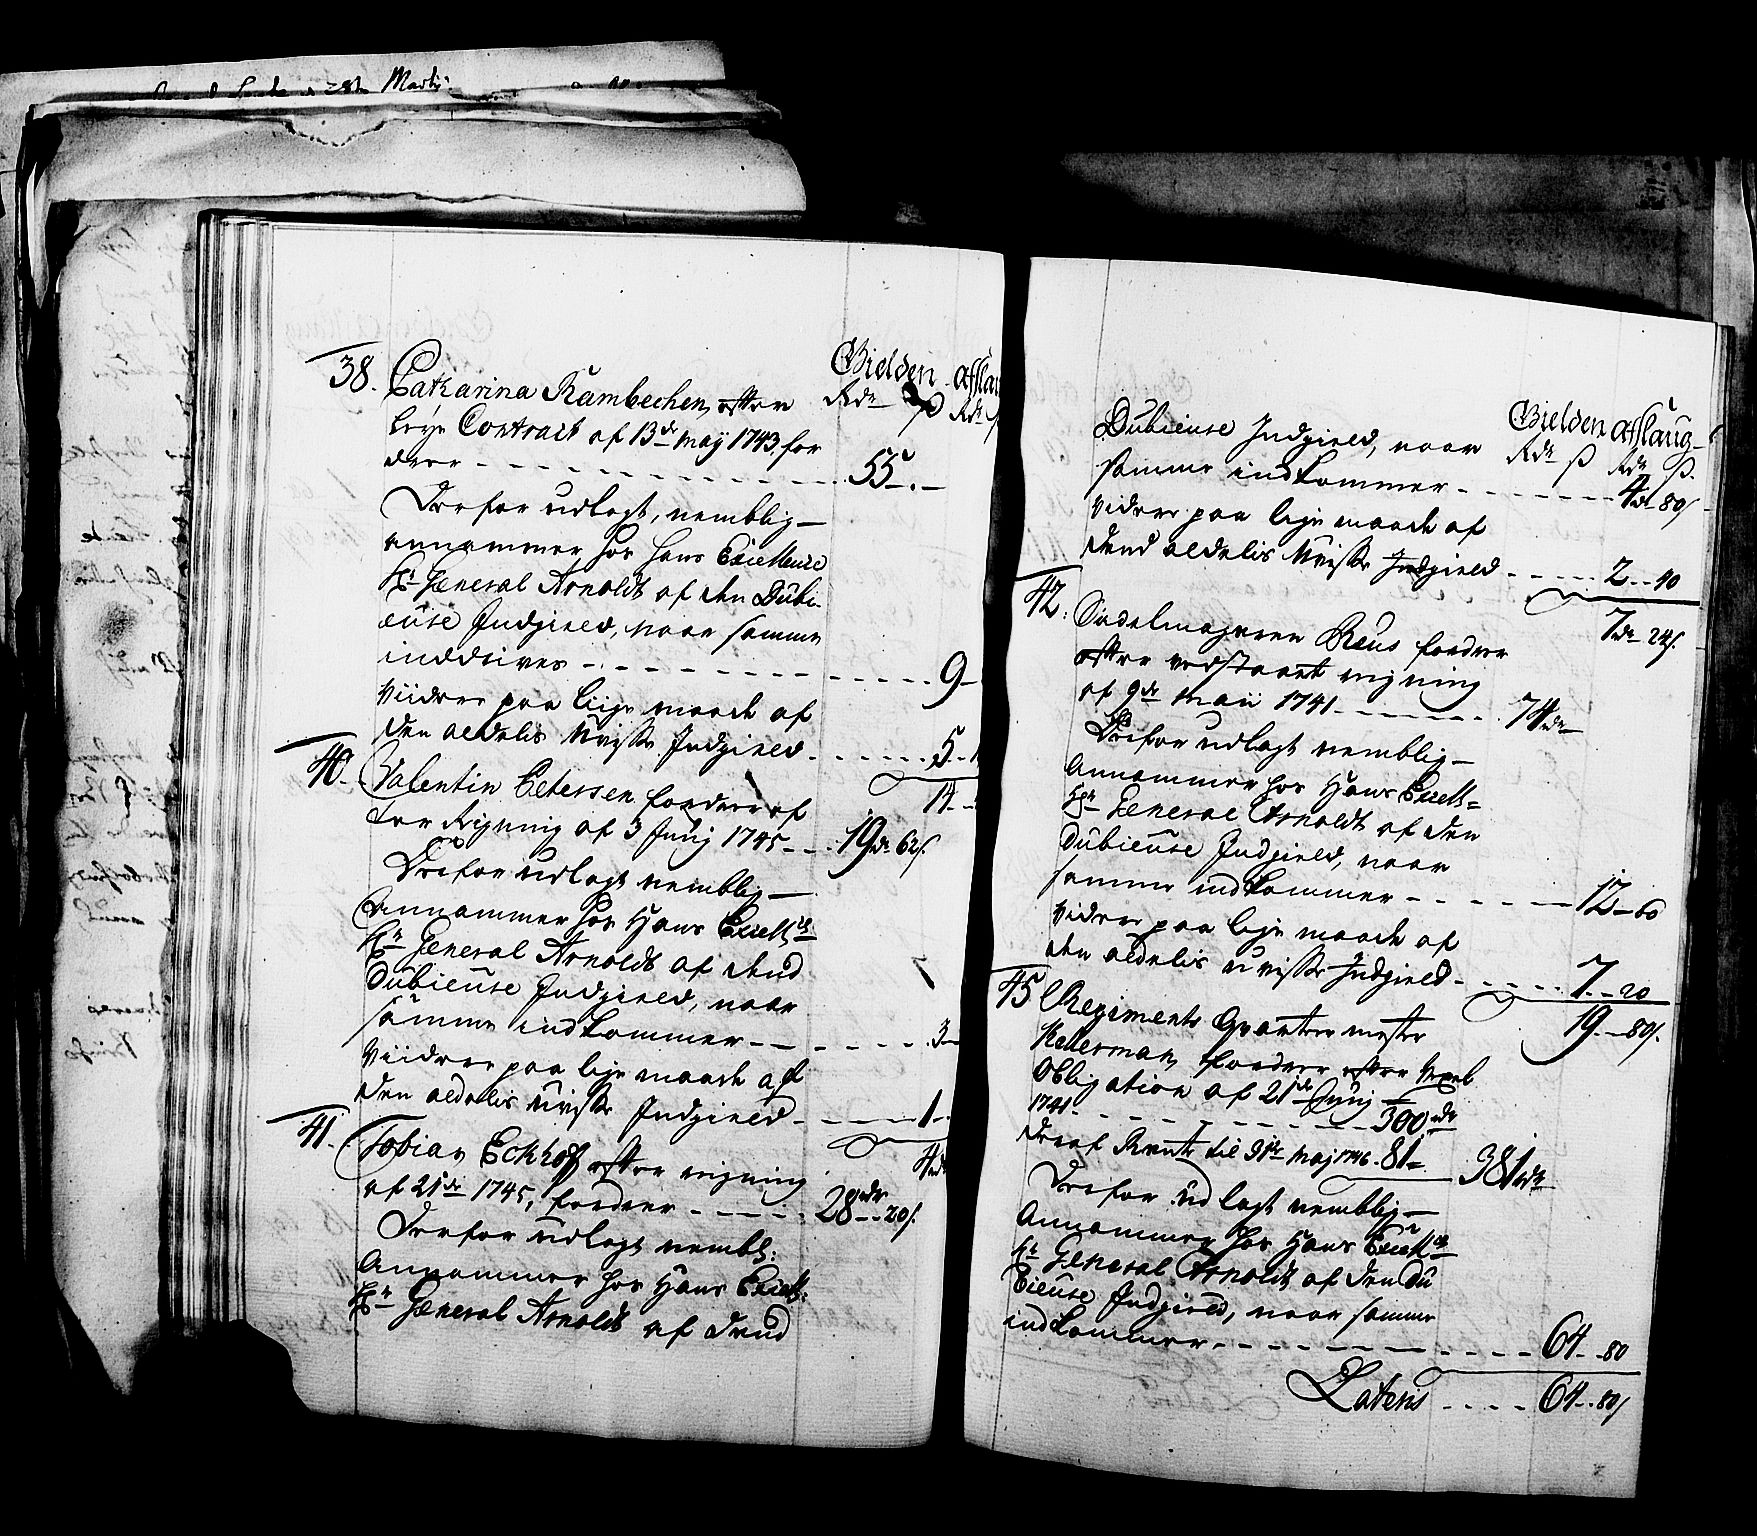 28de Martij
Gielden afslau
Rdr ß Rdr
38. Catharina Rambechen, efter
leye Contract af 13de maij 1743 for
drer - - - 55 - . -
Derfor udlagt, nemblig
annammer hos hans Excellence
Hr General Arnoldt af den Dubi-
euse Indgield, naar samme
inddrives - - - 9 -
Viidere paa liige maade af
den aldelis Uvisse Indgield - - - 5 - 1
14 -
40. Valentin Petersen fordrer ef
ter Rigning af 3 Junij 1745 - - 19 dr 62 ß.
Derfor udlagt nemblig
Annammer hos Hans Excellce
Hr General Arnoldt af dend
Dubieuse Indgield, naar
samme indkommer - - - 3 -
Viidere paa lige maade af
den aldelis uvisse Indgield - - - 1 -
4 dr
41. Tobias Eckhof efter rigning
af 21de 1745, fordrer - - - 28 rdr - 20 ß.
Derfor udlagt nembl:
Annammer hos Hans Excell:
Hr General Arnoldt af dend
Gielden afslaug
Rdr ß Rdr ß.
Dubieuse Indgield, naar
samme indkommer - - - 4 dr - 80 ß
Videre paa lige maade af
dend aldelis Uvisse Indgield - - - 2 - - 40
7 dr - 24 ß.
42. Sadelmageren Reus fordrer
efter rigning
af 9de maii 1741 - - - 74 rdr
Derfor udlagt nemblig
Annammer hos Hans Excell=
Hr General Arnoldt af den
Dubieuse Indgield, naar
samme indkommer - - - 12 - 60
Videre paa lige maade af
den aldelis uvisse Indgield - - - 7 - - 20
19 - 80 ß.
45 Regiments Qvarteer mester
Kellerman, fordrer efter
Obligation af 21de Junij
1741 - - - 300 rdr
deraf Rente til maj 1746. 81 = 381 rdr
Derfor udlagt nemblig
Annammer hos Hans Excellce
Hr General Arnoldt af den Du
bieuse Indgield, naar samme
indkommer - - - 64 - - 80
Lateris - - - 64 - - 80 ß